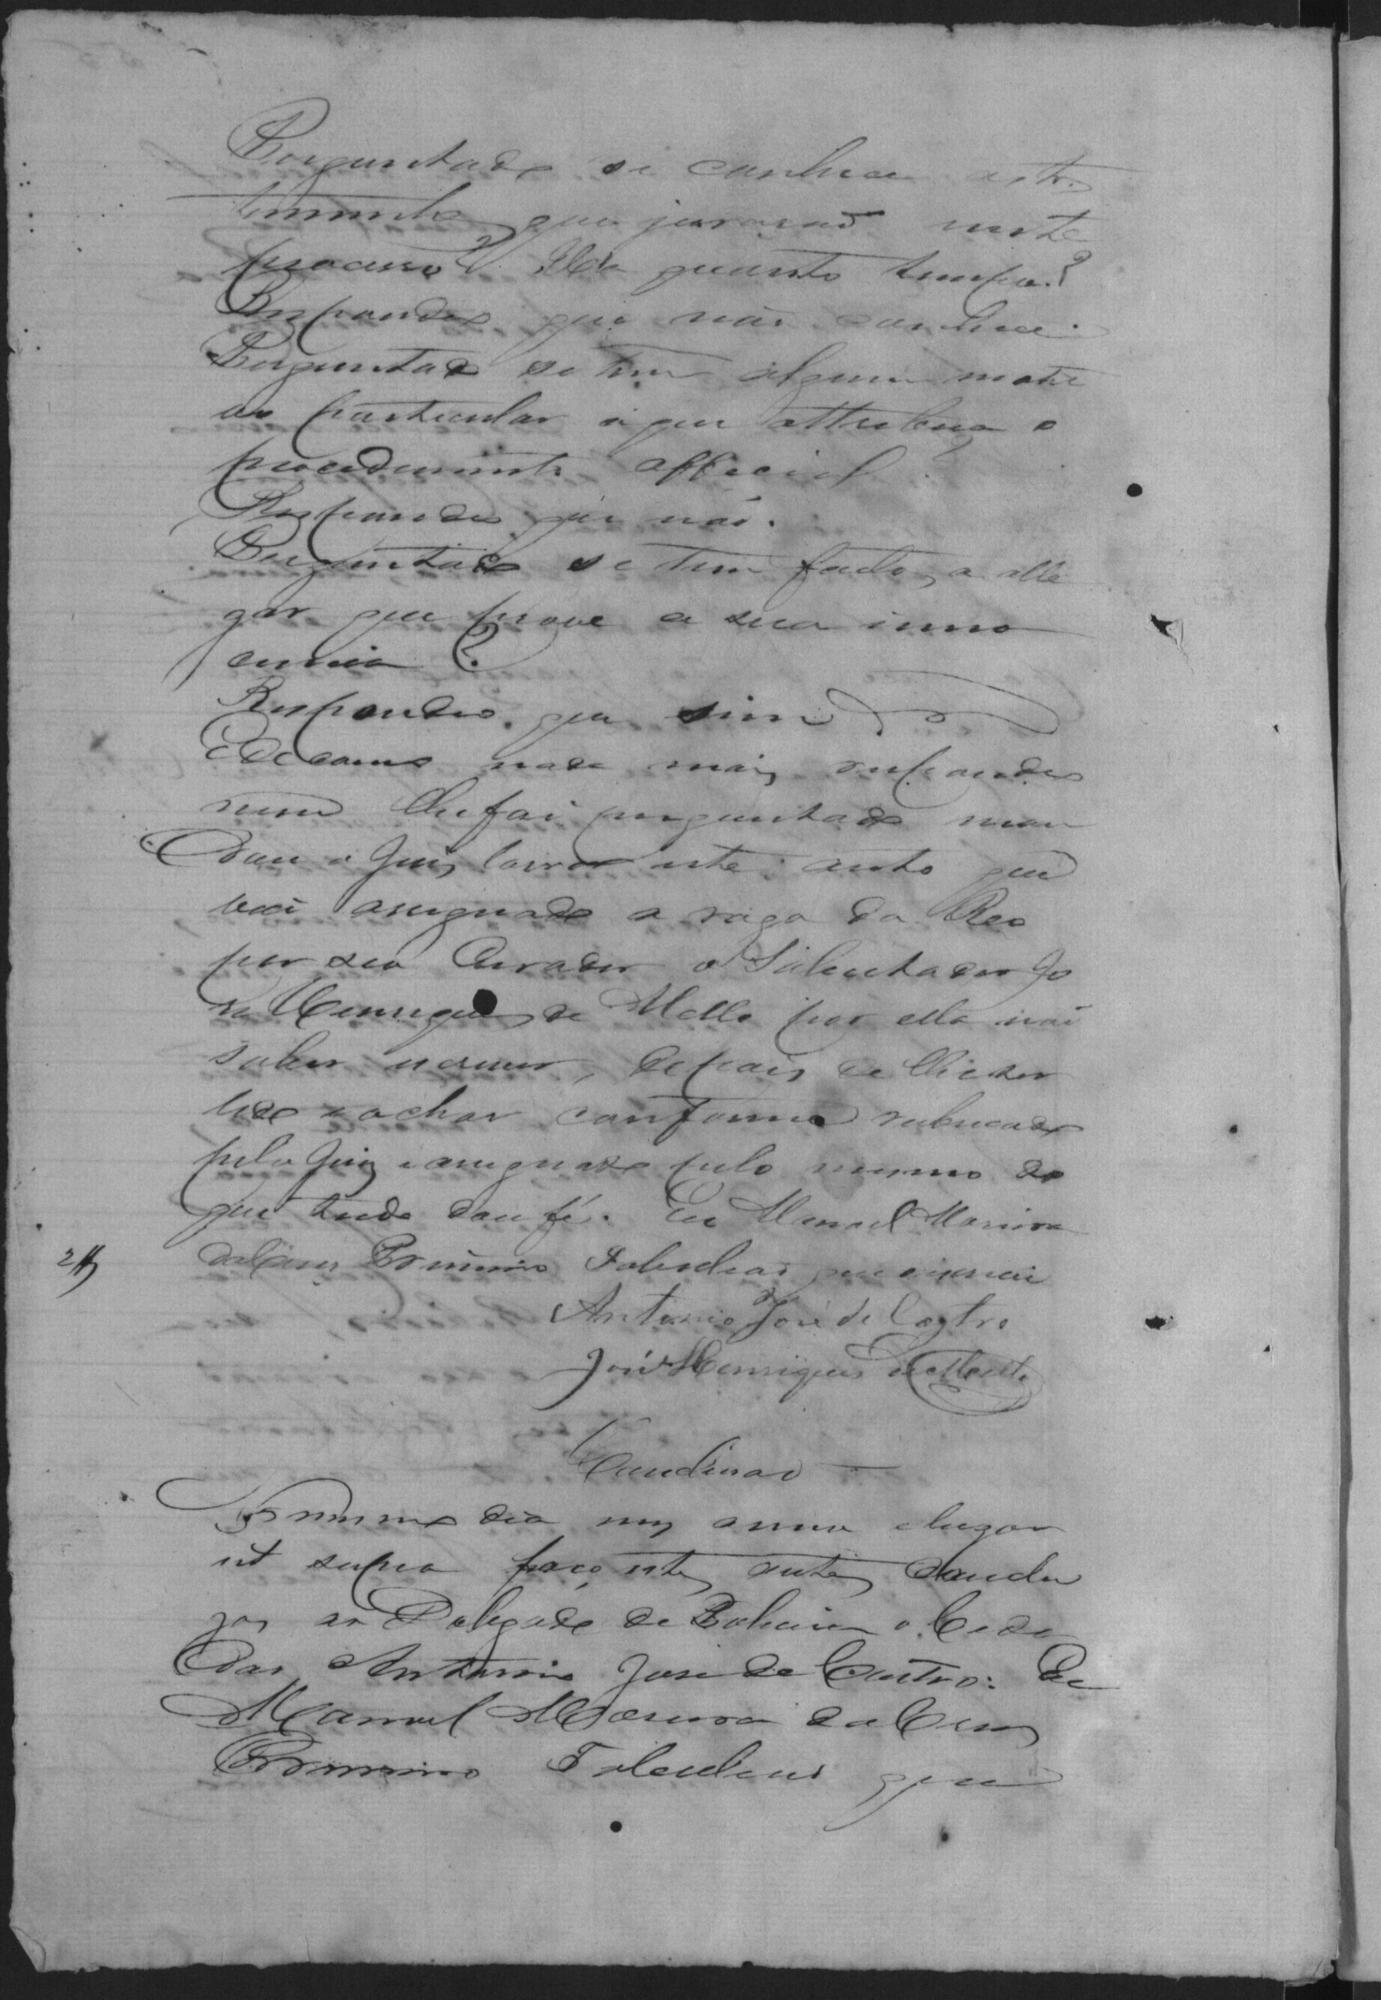 Perguntado si conhece as tes
timunhas que juraraõ neste
processo? Ha quanto tempo?
Respondeo que não conhece.
Perguntado se tem algum moti
vo particular a que attribua o
procedimento official?
Respondeo que não.
Perguntado se tem factos a alle
gar que prove a sua inno
cencia?
Respondeo que sim
E como nada mais respondeo
nem lhe foi perguntado man
dou o Juiz lavrar este auto que
vai assignado a rogo da Reo
por seu Curador o Solicitador Jo
sé Henriques de Mello por ella não
saber escrever, depois de lhe ser
lido e achar conforme rubricado
pelo Juiz e assignado pelo mesmo do
que tudo dou fé. Eu Manoel Moreira
da Cruz Tabelliaõ que escrevi
Antonio José de Castro
José Henriques de Mello
Conclusaõ
No mesmo dia mez anno e lugar
ut supra faço estes autos conclu
zos ao Delegado de Policia o Cida
daõ Antonio José de Castro: Eu
Manoel Moreira da Cruz
Tabelliaõ que